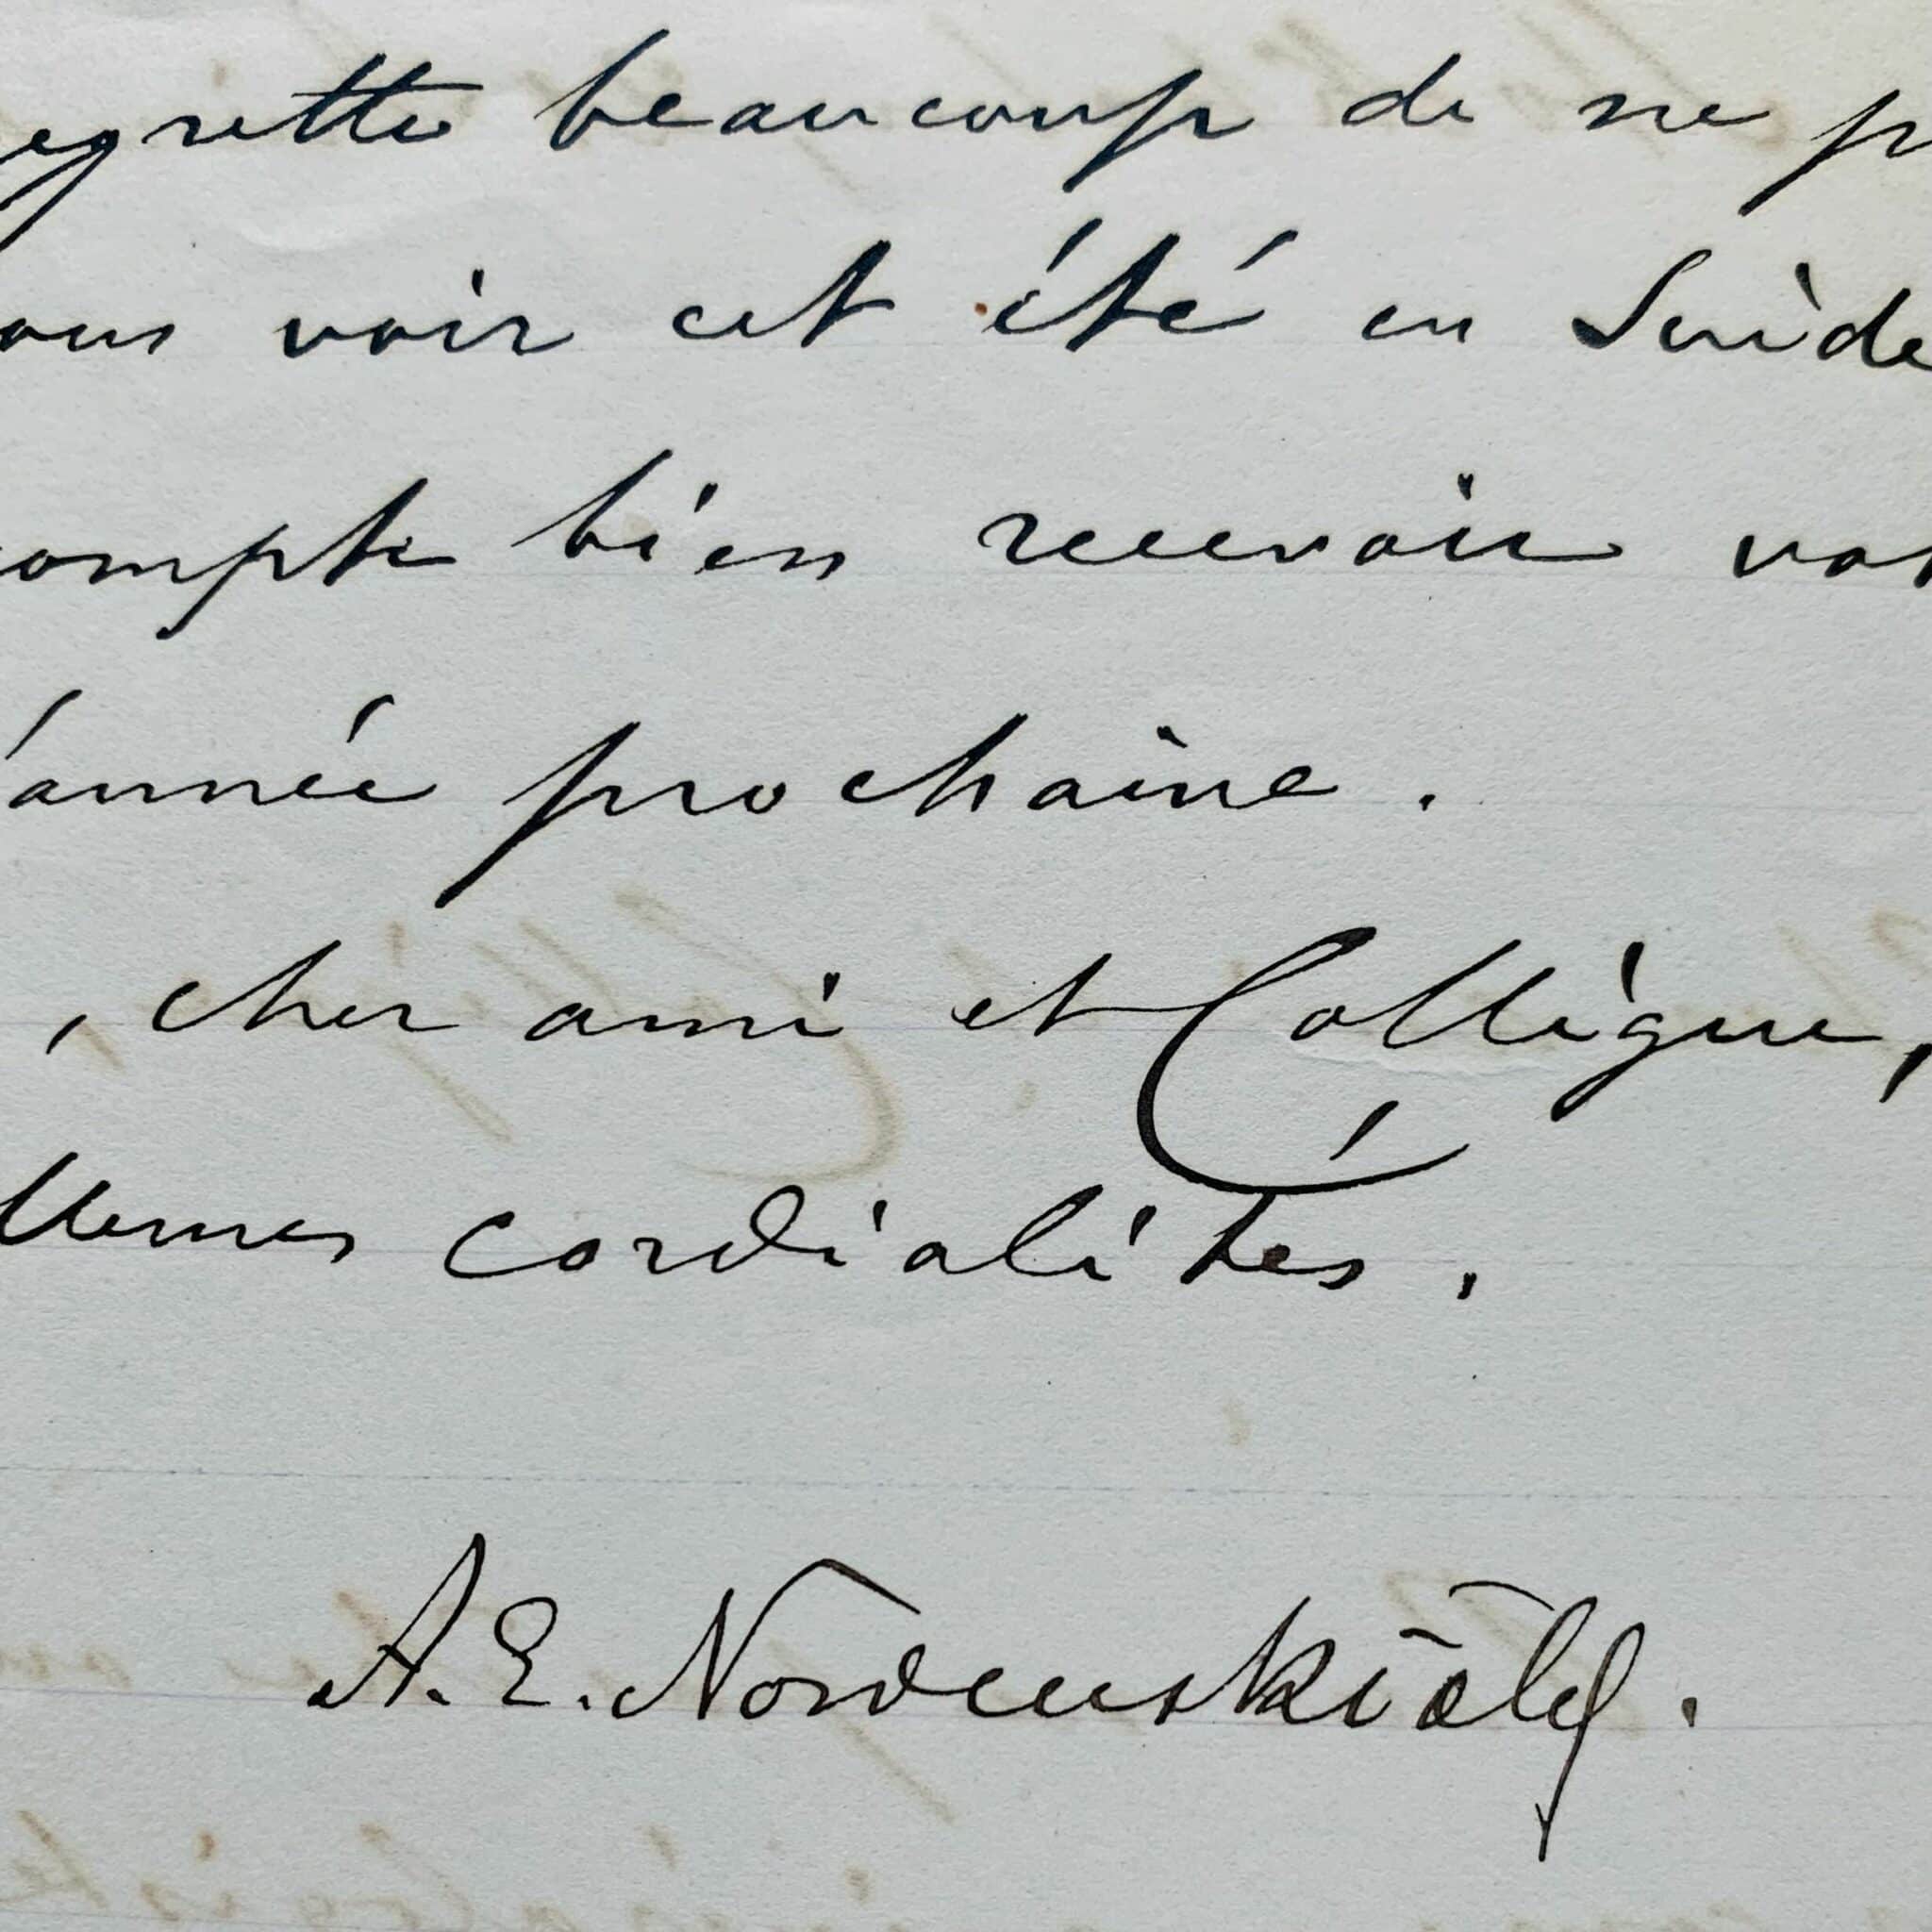 egrette beaucoup de ne p
ous voir cet été en Suède
compte bien recevoir vot
'année prochaine.
, cher ami et Collègue,
llemes cordialités.
A. E. Nordenskiöld.